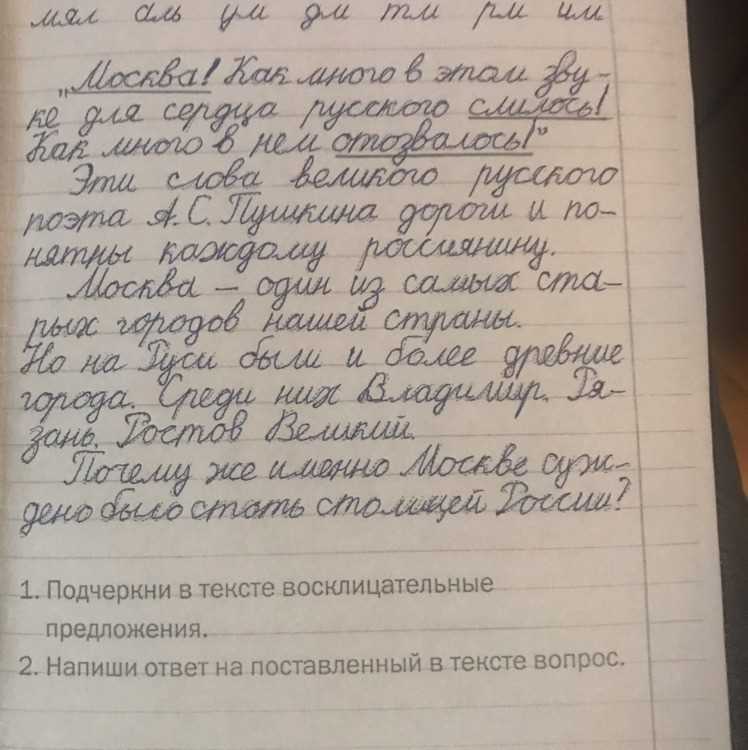 мял аль ум дм тм рм им
„Москва! Как много в этом зву-
ке для сердца русского слилось!
Как много в нем отозвалось!”
Эти слова великого русского
поэта А.С. Пушкина дороги и по-
нятны каждому россиянину.
Москва – один из самых ста-
рых городов нашей страны.
Но на Руси были и более древние
города. Среди них Владимир. Ря-
зань. Ростов Великий.
Почему же именно Москве суж-
дено было стать столицей России?
1. Подчеркни в тексте восклицательные
предложения.
2. Напиши ответ на поставленный в тексте вопрос.